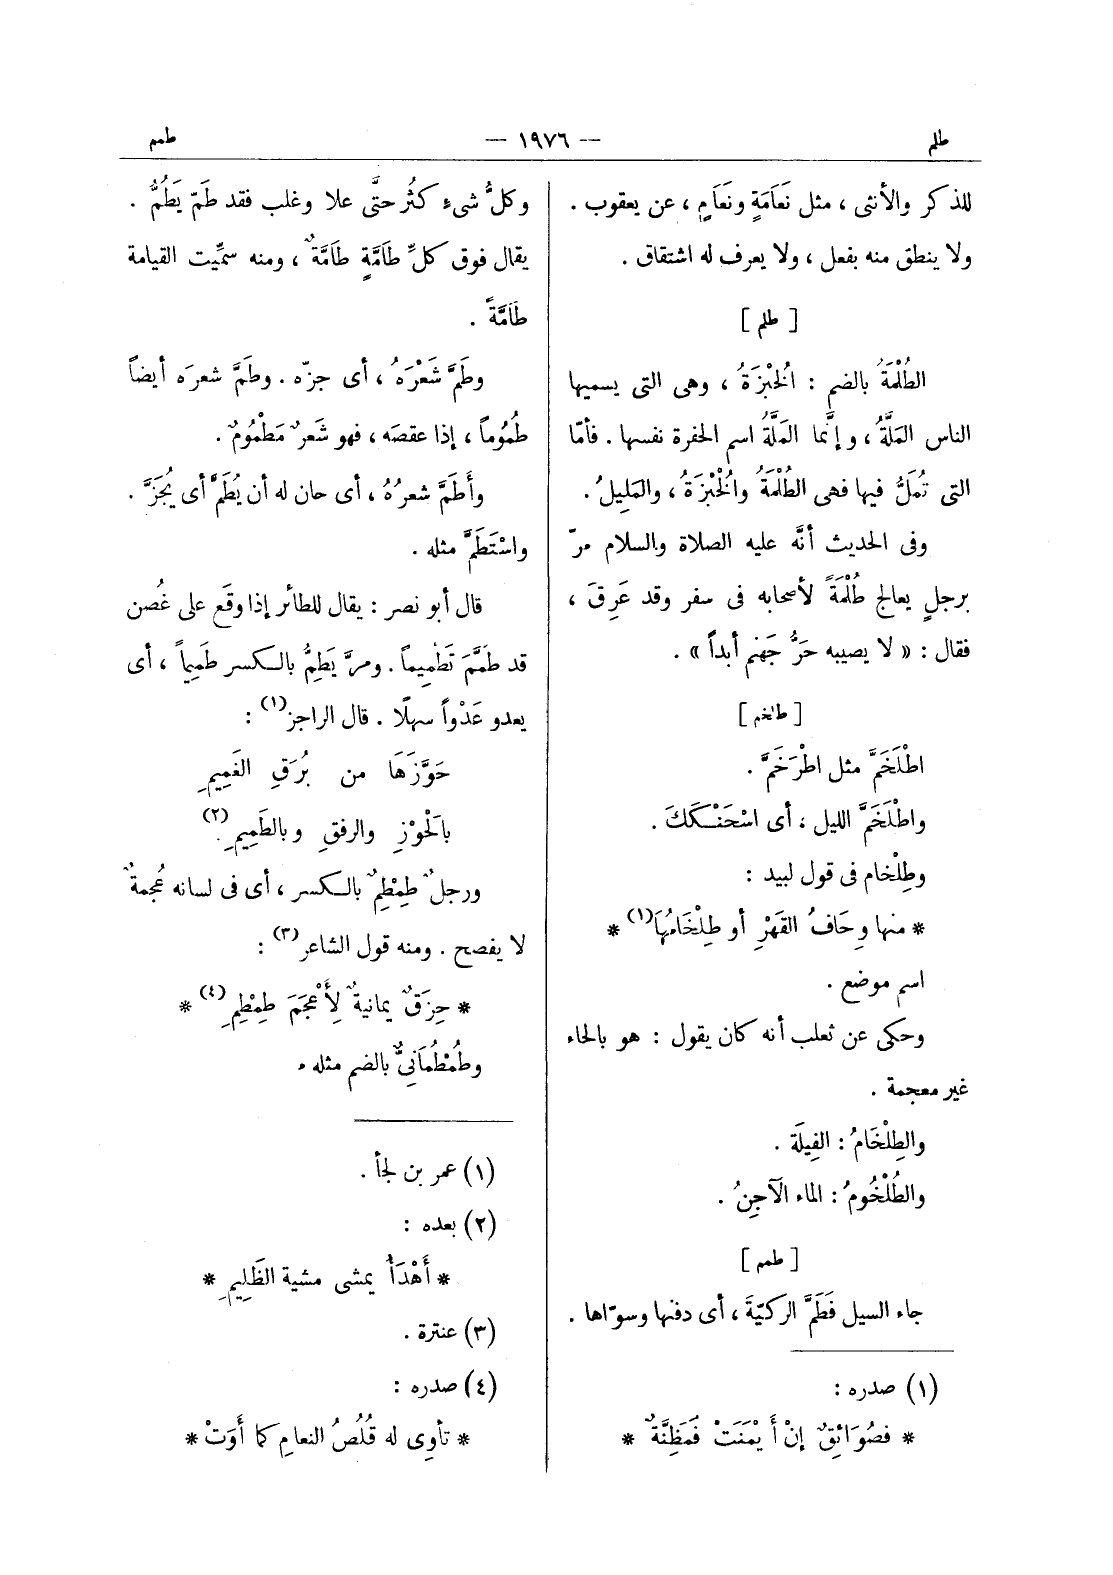 طلم
— ١٩٧٦ —
طمم
للذكر والأنثى ، مثل نَعَامَةٍ ونَعَامٍ ، عن يعقوب .
ولا ينطق منه بفعل ، ولا يعرف له اشتقاق .
[ طلم ]
الطُلْمَةُ بالضم : الْخُبْزَةُ ، وهى التى يسميها
الناس المَلَّةُ ، وإنَّما المَلَّةُ اسم الحفرة نفسها . فأمّا
التى تُمَلُّ فيها فهى الطُلْمَةُ والْخُبْزَةُ ، والمَلِيلُ .
وفى الحديث أنَّه عليه الصلاة والسلام مرّ
برجلٍ يعالج طُلْمَةً لأصحابه فى سفر وقد عَرِقَ ،
فقال : « لا يصيبه حَرُّ جَهنم أبداً » .
[ طلخم ]
اطْلَخَمَّ مثل اطْرَخَمَّ .
واطْلَخَمَّ الليل ، أى اسْحَنْكَكَ .
وطِلْخام فى قول لبيد :
* منها وِحَافُ القَهْرِ أو طِلْخَامُهَا(١) *
اسم موضع .
وحكى عن ثعلب أنه كان يقول : هو بالحاء
غير معجمة .
والطِلْخَامُ : الفِيلَة .
والطُلْخُومُ : الماء الآجِنُ .
[ طمم ]
جاء السيل فَطَمَّ الركيّةَ ، أى دفنها وسوّاها .
(١) صدره :
* فصُوَائِقٌ إنْ أَيْمَنَتْ فَمَظِنَّةٌ *
وكلُّ شىءٍ كثُر حتَّى علا وغلب فقد طَمّ يَطُمُّ .
يقال فوق كلِّ طَامَّةٍ طَامَّةٌ ، ومنه سمِّيت القيامة
طَامَّةً .
وطَمَّ شَعْرَهُ ، أى جزّه . وطَمَّ شعرَه أيضاً
طُمُوماً ، إذا عقصَه ، فهو شَعرٌ مَطْمُومٌ .
وأَطَمَّ شعرُهُ ، أى حان له أن يُطَمَّ أى يُجَزَّ .
واسْتَطَمَّ مثله .
قال أبو نصر : يقال للطائر إذا وقَع على غُصن
قد طَمَّمَ تَطْمِيماً . ومرَّ يَطِمُّ بالكسر طَمِيماً ، أى
يعدو عَدْواً سهلًا . قال الراجز(١) :
حَوَّزَهَا من بُرَقِ الغَمِيمِ
بالْحَوْزِ والرفقِ وبالطَمِيمِ(٢)
ورجلٌ طِمْطِمٌ بالكسر ، أى فى لسانه عُجمةٌ
لا يفصح . ومنه قول الشاعر(٣) :
* حِزَقٌ يمانيةٌ لِأَعْجَمَ طِمْطِمِ(٤) *
وطُمْطُمَانِيٌّ بالضم مثله .
(١) عمر بن لجأ .
(٢) بعده :
* أَهْدَأُ يمشى مشية الظَلِيمِ *
(٣) عنترة .
(٤) صدره :
* تأوِى له قُلُصُ النعامِ كما أَوَتْ *